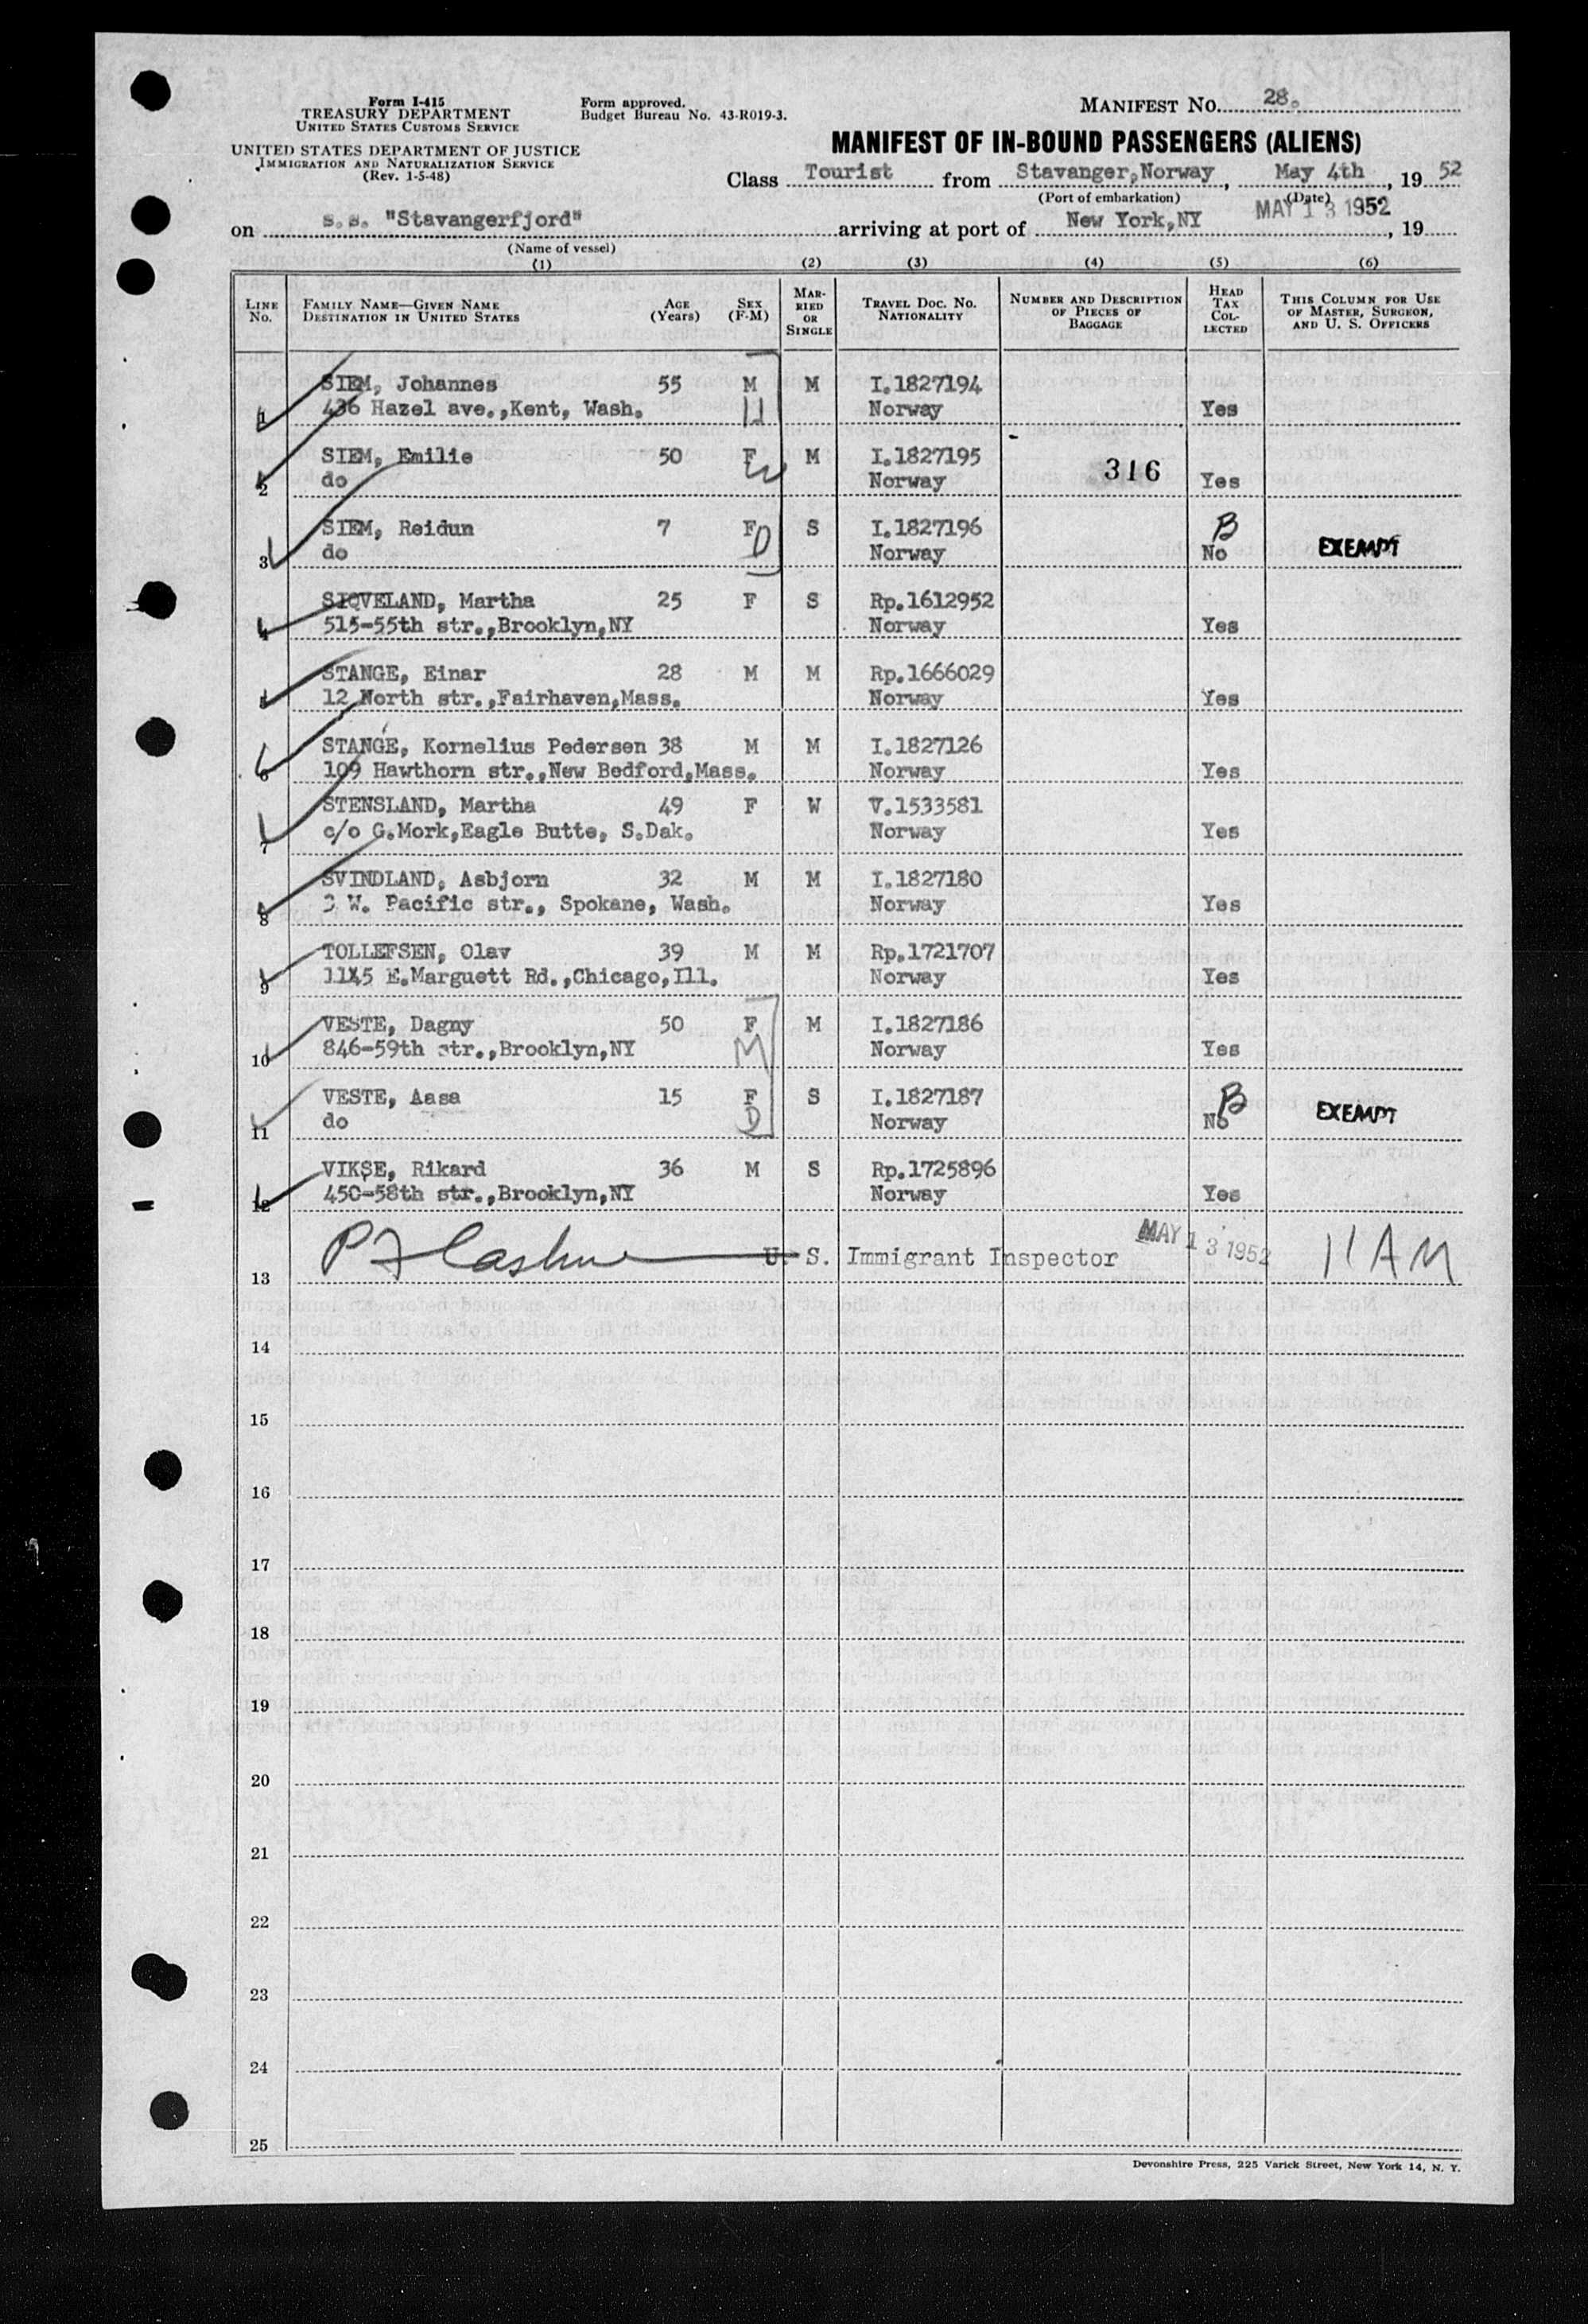 Form I-415
TREASURY DEPARTMENT
UNITED STATES CUSTOMS SERVICE
UNITED STATES DEPARTMENT OF JUSTICE
IMMIGRATION AND NATURALIZATION SERVICE
(Rev. 1-5-48)
Form approved.
Budget Bureau No. 43-R019-3.
MANIFEST NO. 28.
MANIFEST OF IN-BOUND PASSENGERS (ALIENS)
Class Tourist from Stavanger, Norway, May 4th, 19 52
(Port of embarkation) (Date)
on s.s. "Stavangerfjord" arriving at port of New York,NY MAY 13 1952, 19
(Name of vessel)
(1) (2) (3) (4) (5) (6)
LINE NO. FAMILY NAME—GIVEN NAME DESTINATION IN UNITED STATES AGE (YEARS) SEX (F-M) MARRIED OR SINGLE TRAVEL DOC. NO. NATIONALITY NUMBER AND DESCRIPTION OF PIECES OF BAGGAGE HEAD TAX COLLECTED THIS COLUMN FOR USE OF MASTER, SURGEON, AND U. S. OFFICERS
SIEM, Johannes 55 M M I.1827194
1 436 Hazel ave.,Kent, Wash. H Norway Yes
SIEM, Emilie 50 F M I.1827195 316
2 do W Norway Yes
SIEM, Reidun 7 F S I.1827196 B
3 do D Norway No EXEMPT
SIQVELAND, Martha 25 F S Rp.1612952
4 515-55th str.,Brooklyn,NY Norway Yes
STANGE, Einar 28 M M Rp.1666029
5 12 North str.,Fairhaven,Mass. Norway Yes
STANGE, Kornelius Pedersen 38 M M I.1827126
6 109 Hawthorn str.,New Bedford,Mass. Norway Yes
STENSLAND, Martha 49 F W V.1533581
7 c/o G.Mork,Eagle Butte, S.Dak. Norway Yes
SVINDLAND, Asbjorn 32 M M I.1827180
8 W. Pacific str., Spokane, Wash. Norway Yes
TOLLEFSEN, Olav 39 M M Rp.1721707
9 E.Marguett Rd.,Chicago,Ill. Norway Yes
VESTE, Dagny 50 F M I.1827186
10 846-59th str.,Brooklyn,NY M Norway Yes
VESTE, Aasa 15 F S I.1827187 B
11 do D Norway No EXEMPT
VIKSE, Rikard 36 M S Rp.1725896
12 450-58th str.,Brooklyn,NY Norway Yes
13 U. S. Immigrant Inspector MAY 13 1952 11 AM
14
15
16
17
18
19
20
21
22
23
24
25
Devonshire Press, 225 Varick Street, New York 14, N. Y.